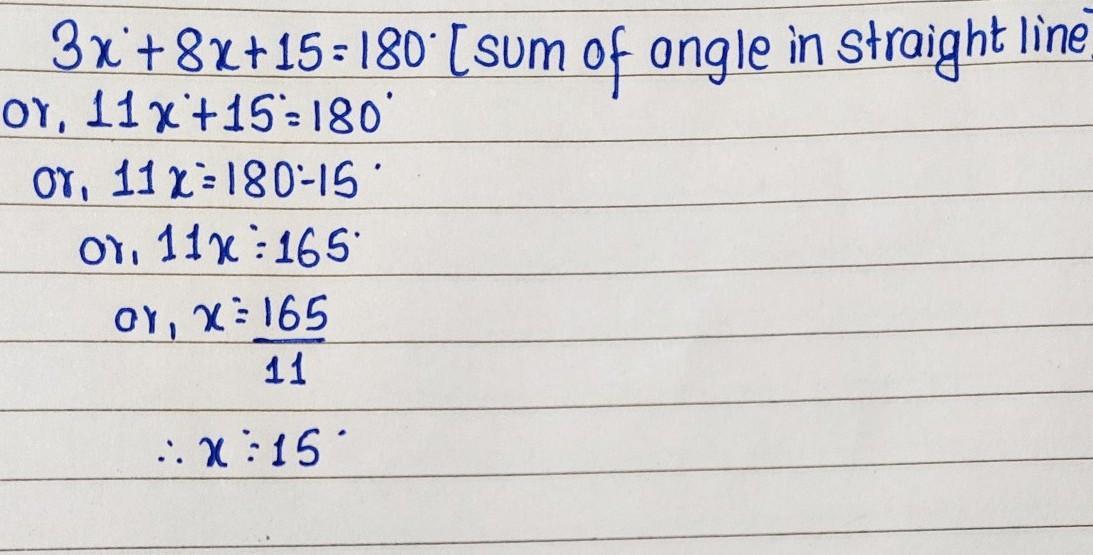 3x°+8x+15=180° [sum of angle in straight line]
or, 11x°+15°=180°
or, 11x°=180°-15°
or, 11x°=165°
or, x°=165
11
∴ x°=15°